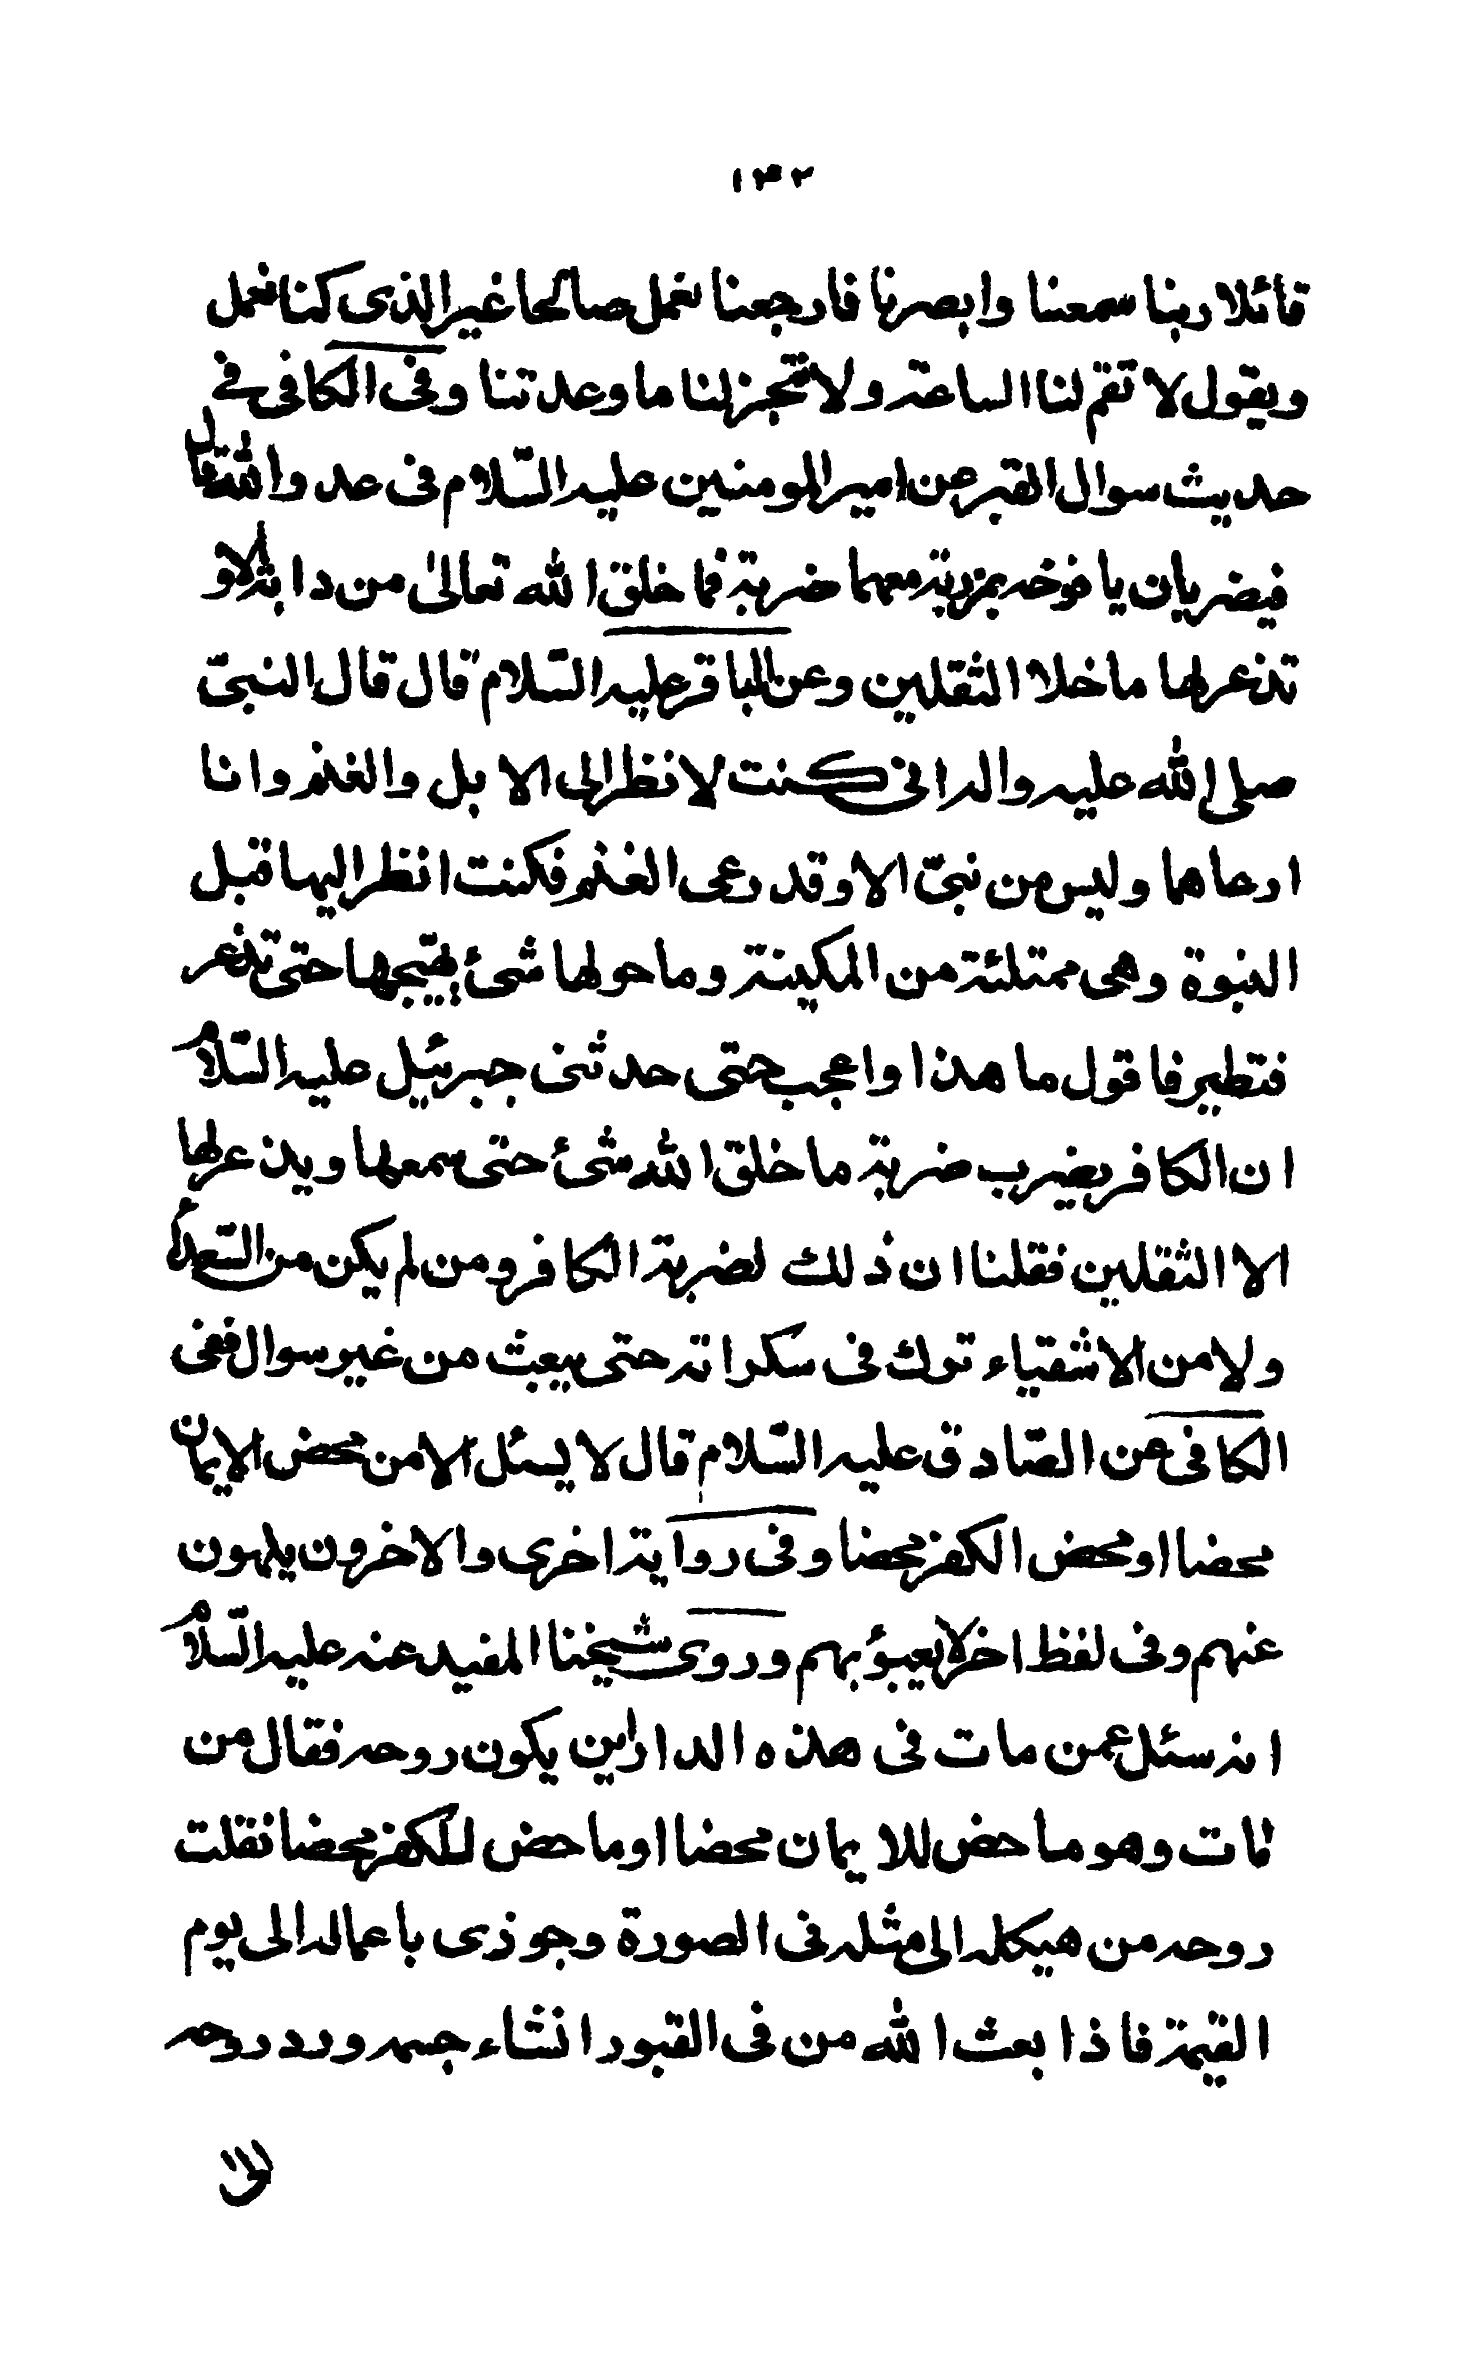 ١٣٢
قائلا ربنا سمعنا وابصرنا فارجعنا نعمل صالحا غير الذى كنا نعمل
ويقول لا تقم لنا الساعة ولا تنجز لنا ما وعدتنا وفى الكافى فى
حديث سوال القبر عن امير المومنين عليه السّلام فى عدو الله قال
فيضربان يافوخه بمزربة معهما ضربة فما خلق الله تعالىٰ من دابة الا و
تذعر لها ما خلا الثقلين وعن الباقر عليه السّلام قال قال النبىّ
صلى الله عليه واله انى كنت لانظر الى الابل والغنم وانا
ارعاها وليس من نبىّ الا وقد رعى الغنم فكنت انظر اليها قبل
النبوة وهى ممتلئة من المكينة وما حولها شئ يهيّجها حتى تذعر
فتطير فاقول ما هذا واعجب حتى حدثنى جبرئيل عليه السّلام
ان الكافر يضرب ضربة ما خلق الله شئ حتى سمعها ويذعر لها
الا الثقلين فقلنا ان ذلك لضربة الكافر ومن لم يكن من السّعداء
ولا من الاشقياء ترك فى سكراته حتى يبعث من غير سوال ففى
الكافى عن الصّادق عليه السّلام قال لا يسئل الا من محض الايمان
محضا او محض الكفر محضا وفى رواية اخرى والاخرون يلهون
عنهم وفى لفظ اخر لا يعبؤ بهم وروى شيخنا المفيد عنه عليه السّلام
انه سئل عمن مات فى هذه الدار اين يكون روحه فقال من
مات وهو ماحض للايمان محضا او ماحض للكفر محضا نقلت
روحه من هيكله الى مثله فى الصورة وجوزى باعماله الى يوم
القيمة فاذا بعث الله من فى القبور انشاء جسمه ورد روحه